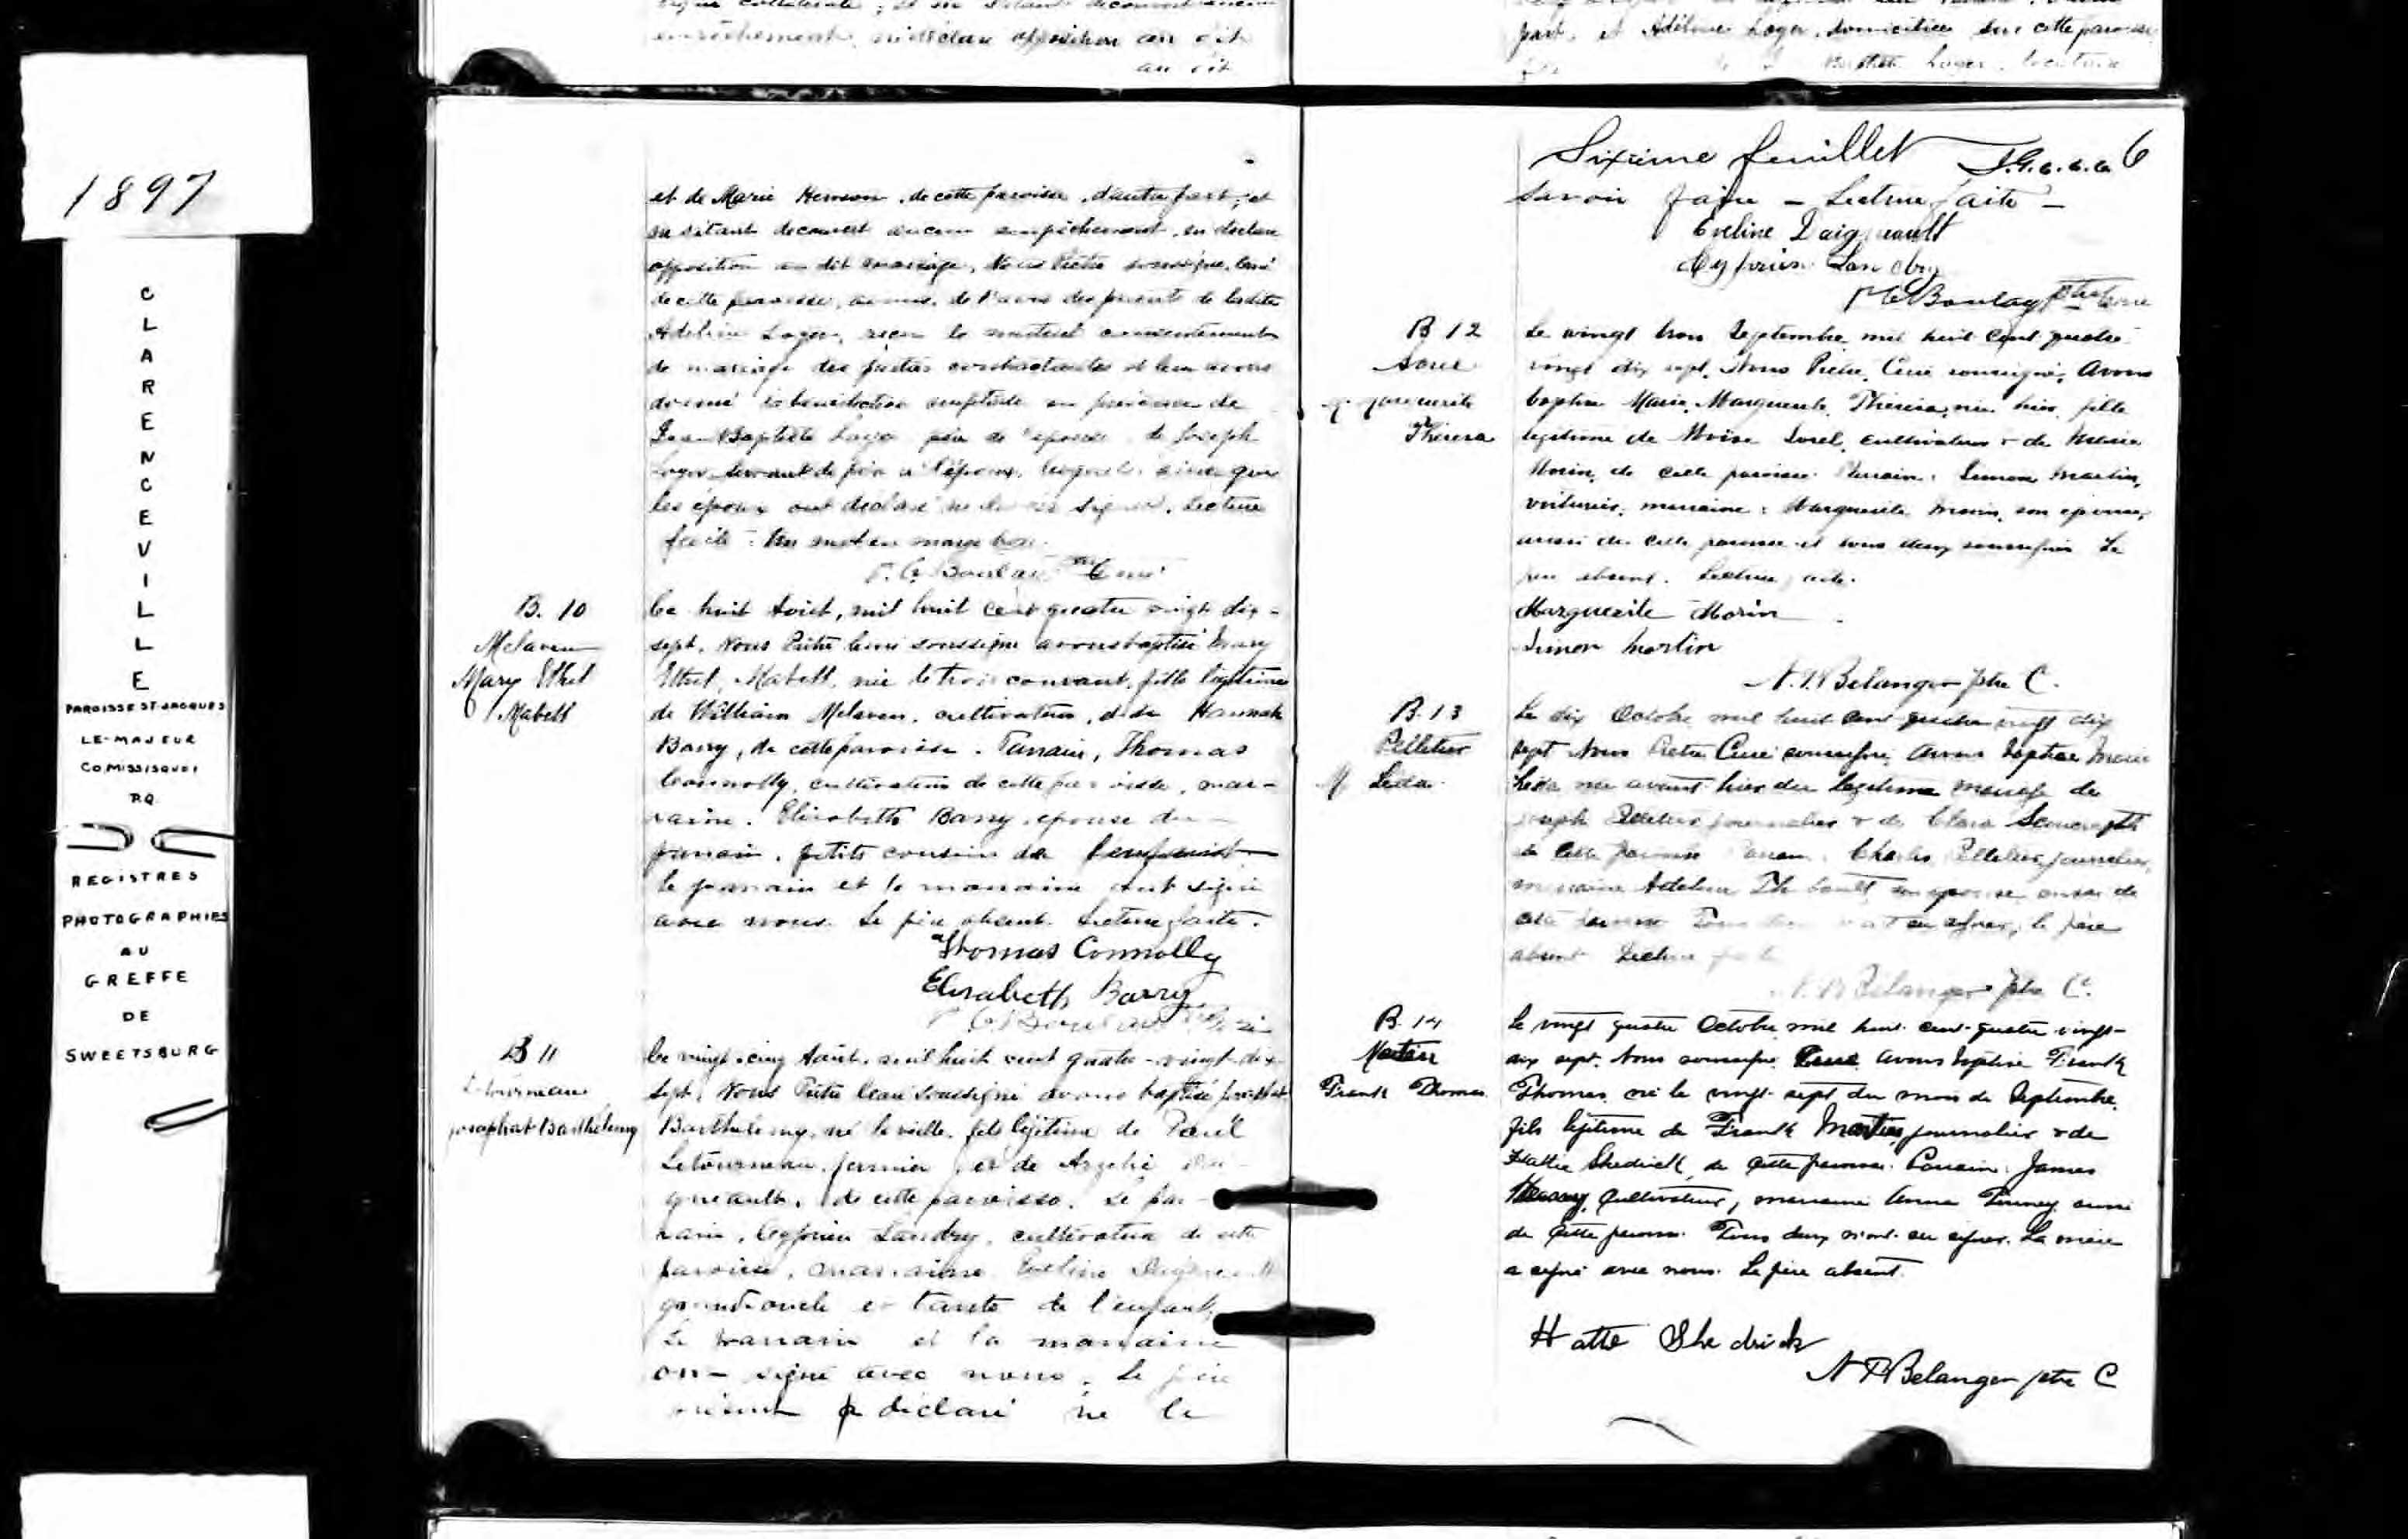 part, et Adéline Loger, domiciliée sur cette paroisse
au dit
1897
CLARENCEVILLE
PAROISSE ST-JACQUES
LE-MAJEUR
CO. MISSISQUOI
P.Q.
REGISTRES
PHOTOGRAPHIES
AU
GREFFE
DE
SWEETSBURG
et de Marie Henson, de cette paroisse, d'autre part; et
ne s'étant découvert aucun empêchement, ni déclaré
opposition au dit mariage, Nous Prêtre soussigné, Curé
de cette paroisse, avons, de l'avis des parents de ladite
Adéline Loger, reçu le mutuel consentement
de mariage des parties contractantes et leur avons
donné la bénédiction nuptiale en présence de
Jean Baptiste Loger père de l'épouse, de Joseph
Loger servant de père à l'époux, lesquels ainsi que
les époux ont déclaré ne savoir signer. Lecture
faite. Un mot en marge bon.
B. 10
Mclaven
Mary Ethel
Mabell
Ce huit Août, mil huit cent quatre vingt dix-
sept, Nous Prêtre Curé soussigné avons baptisé Mary
Ethel, Mabell, née le trois courant, fille légitime
de William Mclaven, cultivateur, et de Hannah
Barry, de cette paroisse. Parrain, Thomas
Connolly, cultivateur de cette paroisse, mar-
raine. Elisabeth Barry, épouse du
parrain, petits cousins de l'enfant
le parrain et la marraine ont signé
avec nous. Le père absent. Lecture faite.
Thomas Connolly
Elisabeth Barry
B 11
Letourneau
Josaphat Barthélemy
Ce vingt-cinq Août, mil huit cent quatre-vingt-dix-
sept, Nous Prêtre Curé soussigné avons baptisé Josaphat
Barthélemy, né la veille, fils légitime de Paul
Letourneau, fermier, et de Azélie Dai-
gneault, de cette paroisse. Le par-
rain, Cyprien Landry, cultivateur de cette
paroisse, marraine Eveline Daigneault
grand oncle et tante de l'enfant,
Le parrain et la marraine
ont signé avec nous. Le père
présent a déclaré ne le
Sixième feuillet 6
savoir faire - Lecture faite -
Eveline Daigneault
Cyprien Landry
B 12
Marguerite
Théresa
Le vingt trois Septembre mil huit cent quatre-
vingt dix sept, Nous Prêtre, Curé soussigné, avons
baptisé Marie, Marguerite, Thérésa, née hier, fille
légitime de Moïse Sorel, cultivateur & de Marie
Morin, de cette paroisse. Parrain: Simon Martin,
voiturier, marraine: Marguerite Morin, son épouse,
aussi de cette paroisse et tous deux soussignés. Le
père absent. Lecture faite.
Marguerite Morin
Simon Martin
N. P. Belanger ptre C.
B. 13
Pelletier
M Leda
Le dix Octobre mil huit cent quatre vingt dix
sept Nous Prêtre Curé soussigné avons baptisé Marie
Leda née avant hier du légitime mariage de
Joseph Pelletier journalier & de Clara
de cette paroisse Parrain: Charles Pelletier, journalier,
marraine Adelina Thibault son épouse aussi de
cette paroisse Tous deux n'ont su signer, le père
absent Lecture faite
N. P. Belanger ptre C.
B. 14
Martin
Frank Thomas
Le vingt quatre Octobre mil huit cent quatre vingt-
dix sept. Nous soussigné Curé avons baptisé Frank
Thomas, né le vingt-sept du mois de Septembre,
fils légitime de Frank Martin, journalier & de
Hattie Shedrick, de cette paroisse. Parrain: James
cultivateur, marraine Anna aussi
de cette paroisse. Tous deux n'ont su signer. La mère
a signé avec nous. Le père absent.
Hatte Shedrick
N P Belanger ptre C